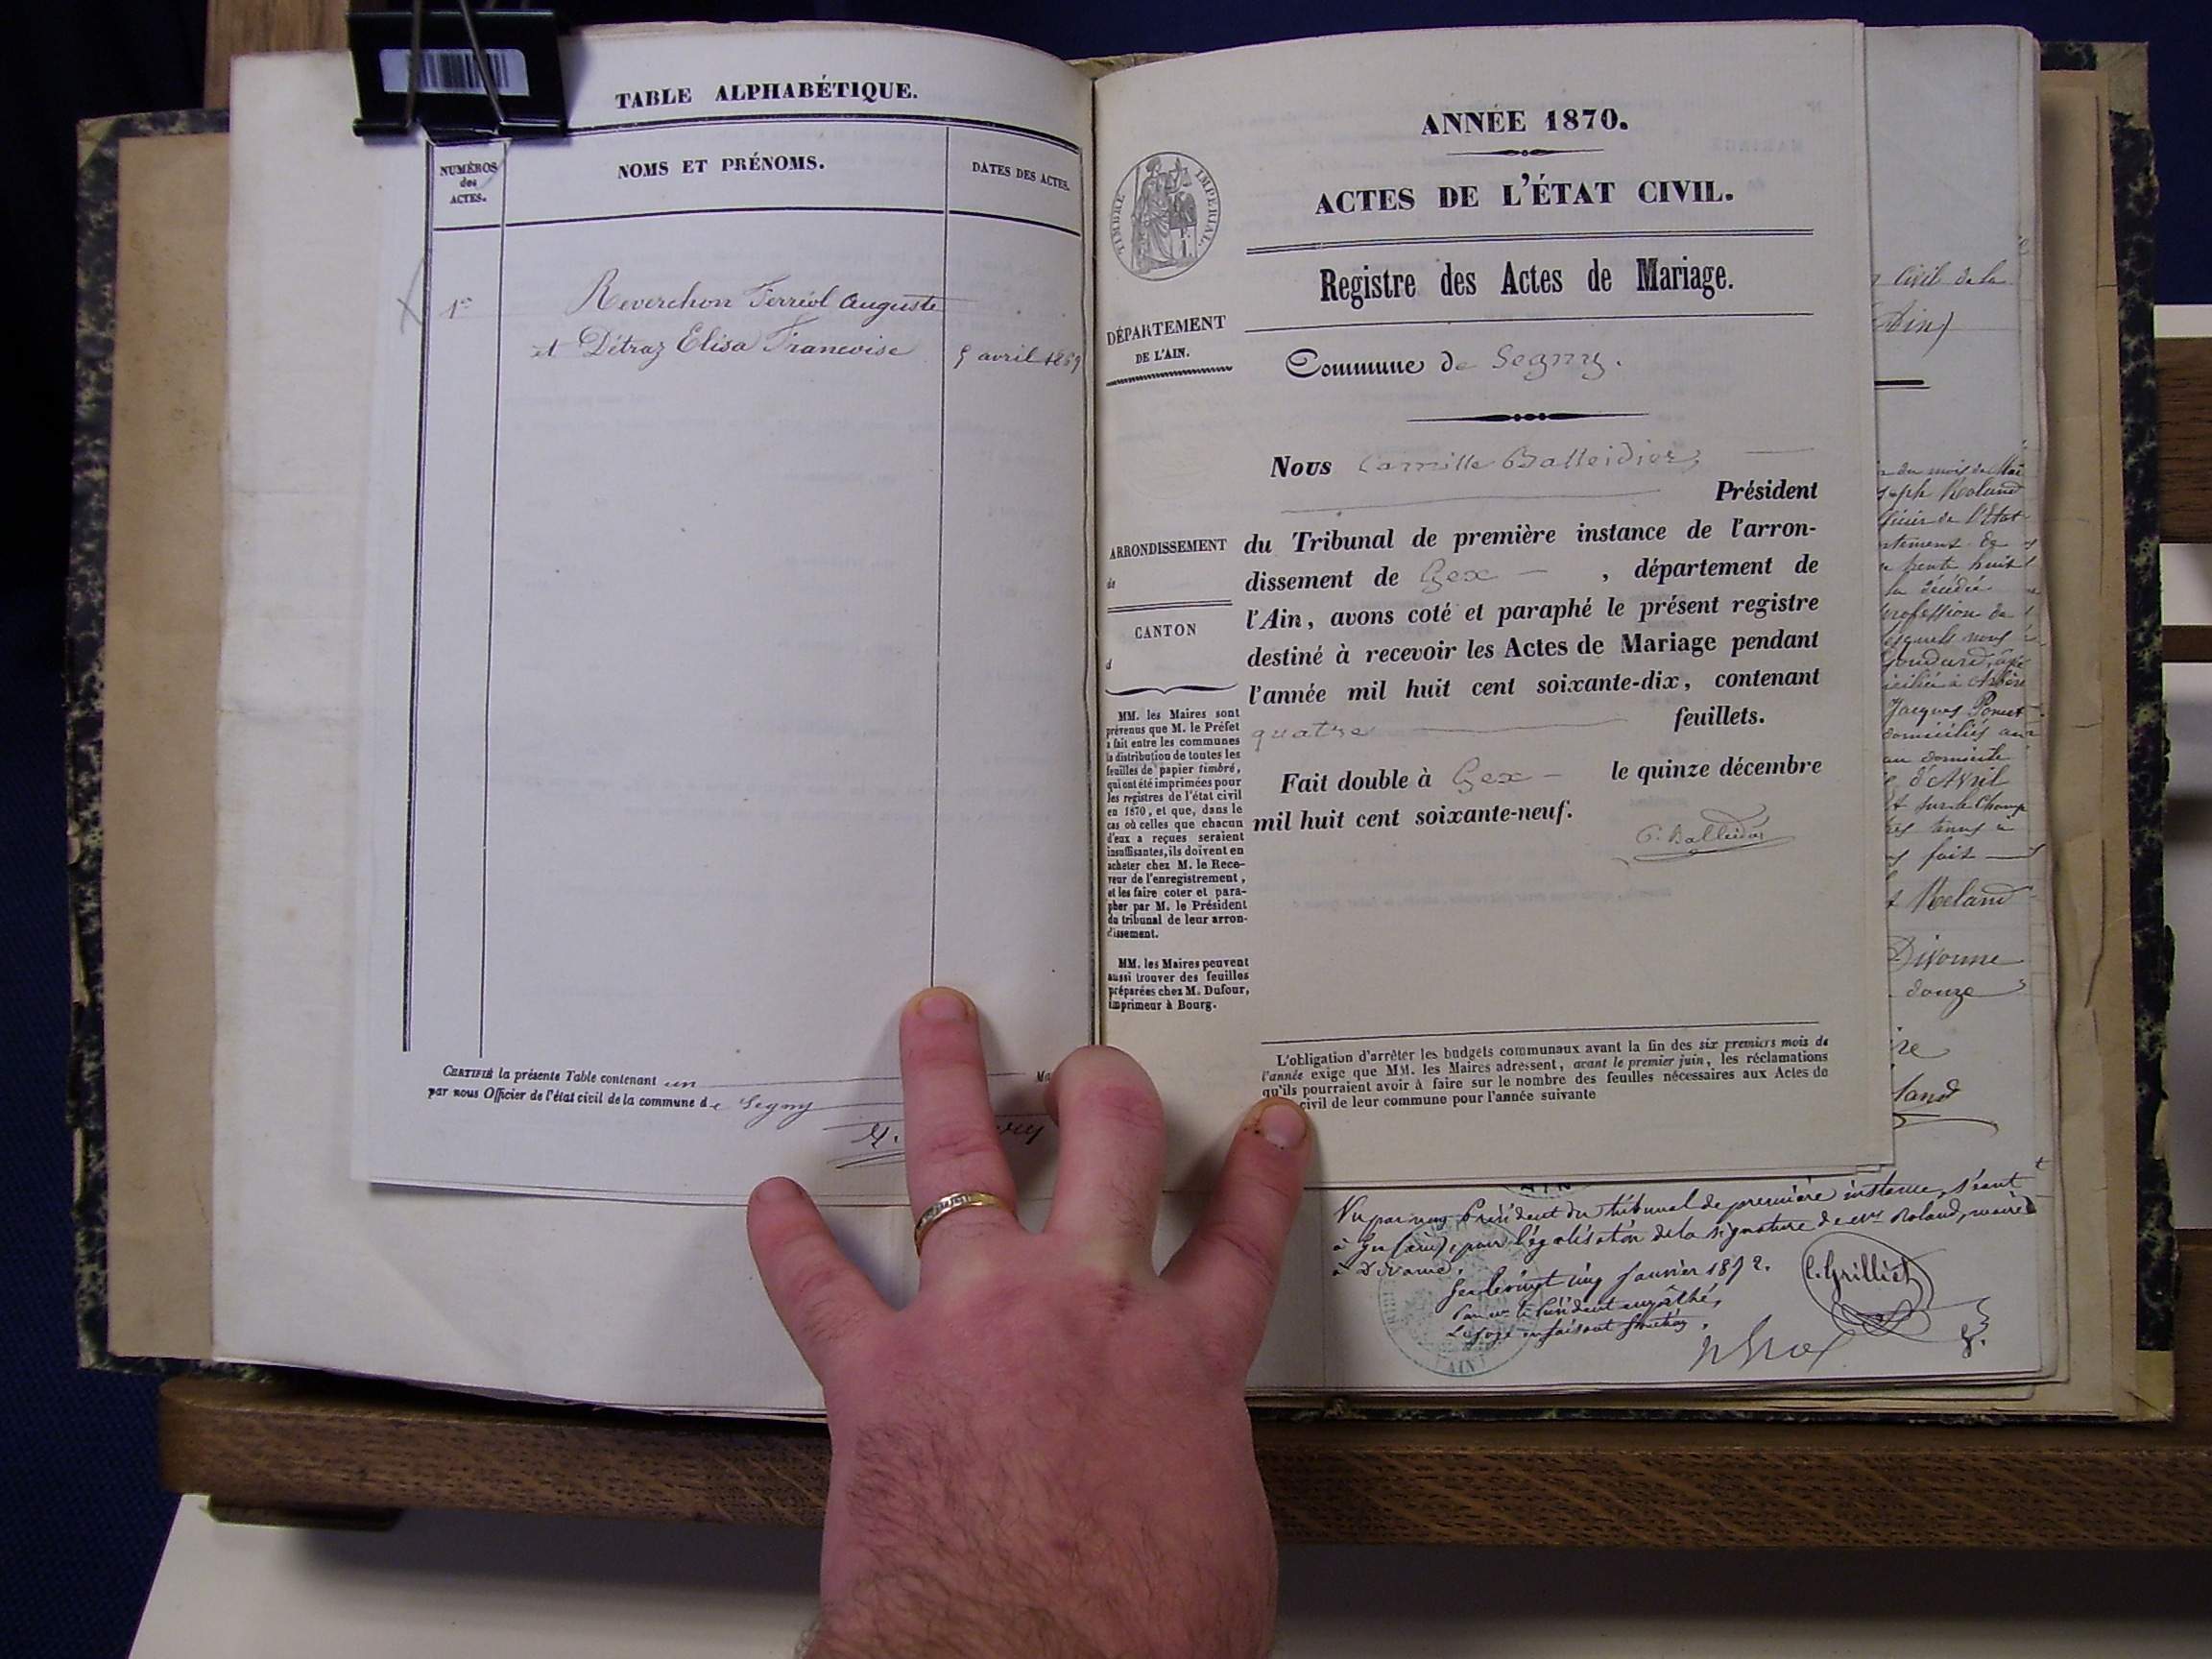 TABLE ALPHABÉTIQUE.
NUMÉROS
des
ACTES.
NOMS ET PRÉNOMS.
DATES DES ACTES.
1er
Reverchon Ferréol Auguste
et Détraz Elisa Francoise
5 avril 1869
CERTIFIÉ la présente Table contenant un Ma
par nous Officier de l'état civil de la commune de Segny
ANNÉE 1870.
ACTES DE L'ÉTAT CIVIL.
TIMBRE IMPÉRIAL.
Registre des Actes de Mariage.
DÉPARTEMENT
DE L'AIN.
Commune de Segny.
Nous Camille Balleidier
Président
ARRONDISSEMENT
de
CANTON
d
du Tribunal de première instance de l'arron-
dissement de Gex — , département de
l'Ain, avons coté et paraphé le présent registre
destiné à recevoir les Actes de Mariage pendant
l'année mil huit cent soixante-dix, contenant
quatre feuillets.
Fait double à Gex — le quinze décembre
mil huit cent soixante-neuf.
C. Balleidier
MM. les Maires sont
prévenus que M. le Préfet
a fait entre les communes
la distribution de toutes les
feuilles de papier timbré,
qui ont été imprimées pour
les registres de l'état civil
en 1870, et que, dans le
cas où celles que chacun
d'eux a reçues seraient
insuffisantes, ils doivent en
acheter chez M. le Rece-
veur de l'enregistrement,
et les faire coter et para-
pher par M. le Président
du tribunal de leur arron-
dissement.
MM. les Maires peuvent
aussi trouver des feuilles
préparées chez M. Dufour,
imprimeur à Bourg.
L'obligation d'arrêter les budgets communaux avant la fin des six premiers mois de
l'année exige que MM. les Maires adressent, avant le premier juin, les réclamations
qu'ils pourraient avoir à faire sur le nombre des feuilles nécessaires aux Actes de
civil de leur commune pour l'année suivante
civil de la
Ain)
du mois de Mai
Joseph Roland
de l'Etat
trente huit
la décédée
profession de
nous
Goudard, âgé
Jacques Poncet
domiciliés
au domicile
d'Avril
sur le champ
tenus
fait
Roland
Divonne
douze
Vu par nous Président du tribunal de première instance, séant
à Gex (ain), pour légalisation de la signature de Mr Roland, maire
à Divonne.
Gex le vingt cinq Janvier 1872.
Pour le Président empêché,
Le juge en faisant fonction,
C. Grilliet
AIN